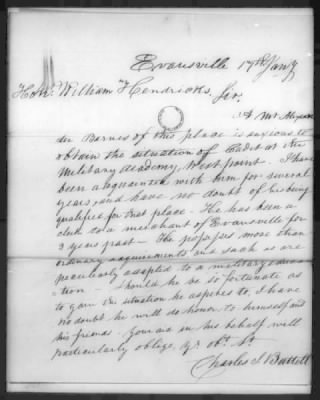 Evansville 17th Jany
Honl. William Hendricks,
Sir,
A Mr Alexan-
der Barnes of this place is anxious to
obtain the situation of Cadet at the
Military Academy, West point. I have
been acquainted with him for several
years, and have no doubt of his being
qualified for that place. He has been a
clerk to a merchant of Evansville for
3 years past — He possesses more than
ordinary acquirements and such as are
peculiarly adapted to a military educa
tion — Should he be so fortunate as
to gain the situation he aspires to, I have
no doubt he will do honor to himself and
his friends. Your aid in his behalf will
particularly oblige, yr. obt. St.
Charles I. Battell